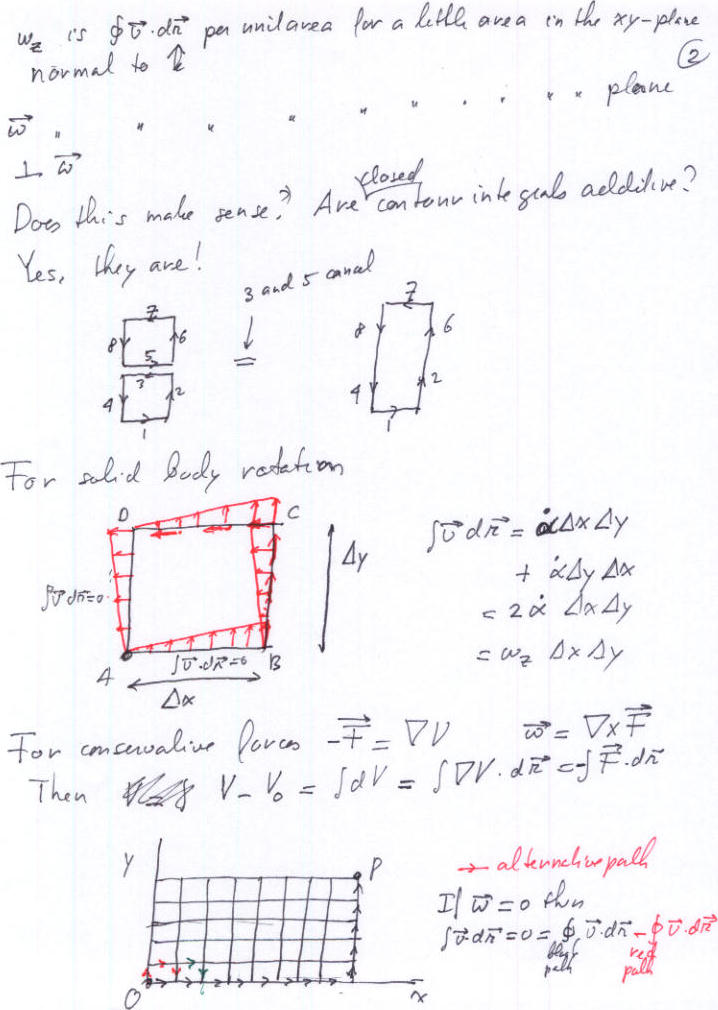 ω_z is ∮ v⃗·dr⃗ per unit area for a little area in the xy-plane
②
normal to k̂
ω⃗ " " " " " " " " " " plane
⊥ ω⃗
closed
Does this make sense? Are contour integrals additive?
Yes, they are!
3 and 5 cancel
7 7
8 6 8 6
5 =
3
4 2 4 2
1 1
For solid body rotation
D C
∫v⃗ dr⃗ = α̇ Δx Δy
Δy
+ α̇ Δy Δx
∫v⃗ dr⃗=0
= 2α̇ Δx Δy
= ω_z Δx Δy
A ∫v⃗·dr⃗=0 B
Δx
For conservative forces -F⃗ = ∇V ω⃗ = ∇×F⃗
Then V - V₀ = ∫dV = ∫∇V·dr⃗ = -∫F⃗·dr⃗
y P
→ alternative path
If ω⃗ = 0 then
∫v⃗·dr⃗ = 0 = ∮ v⃗·dr⃗ - ∮ v⃗·dr⃗
black path red path
O x